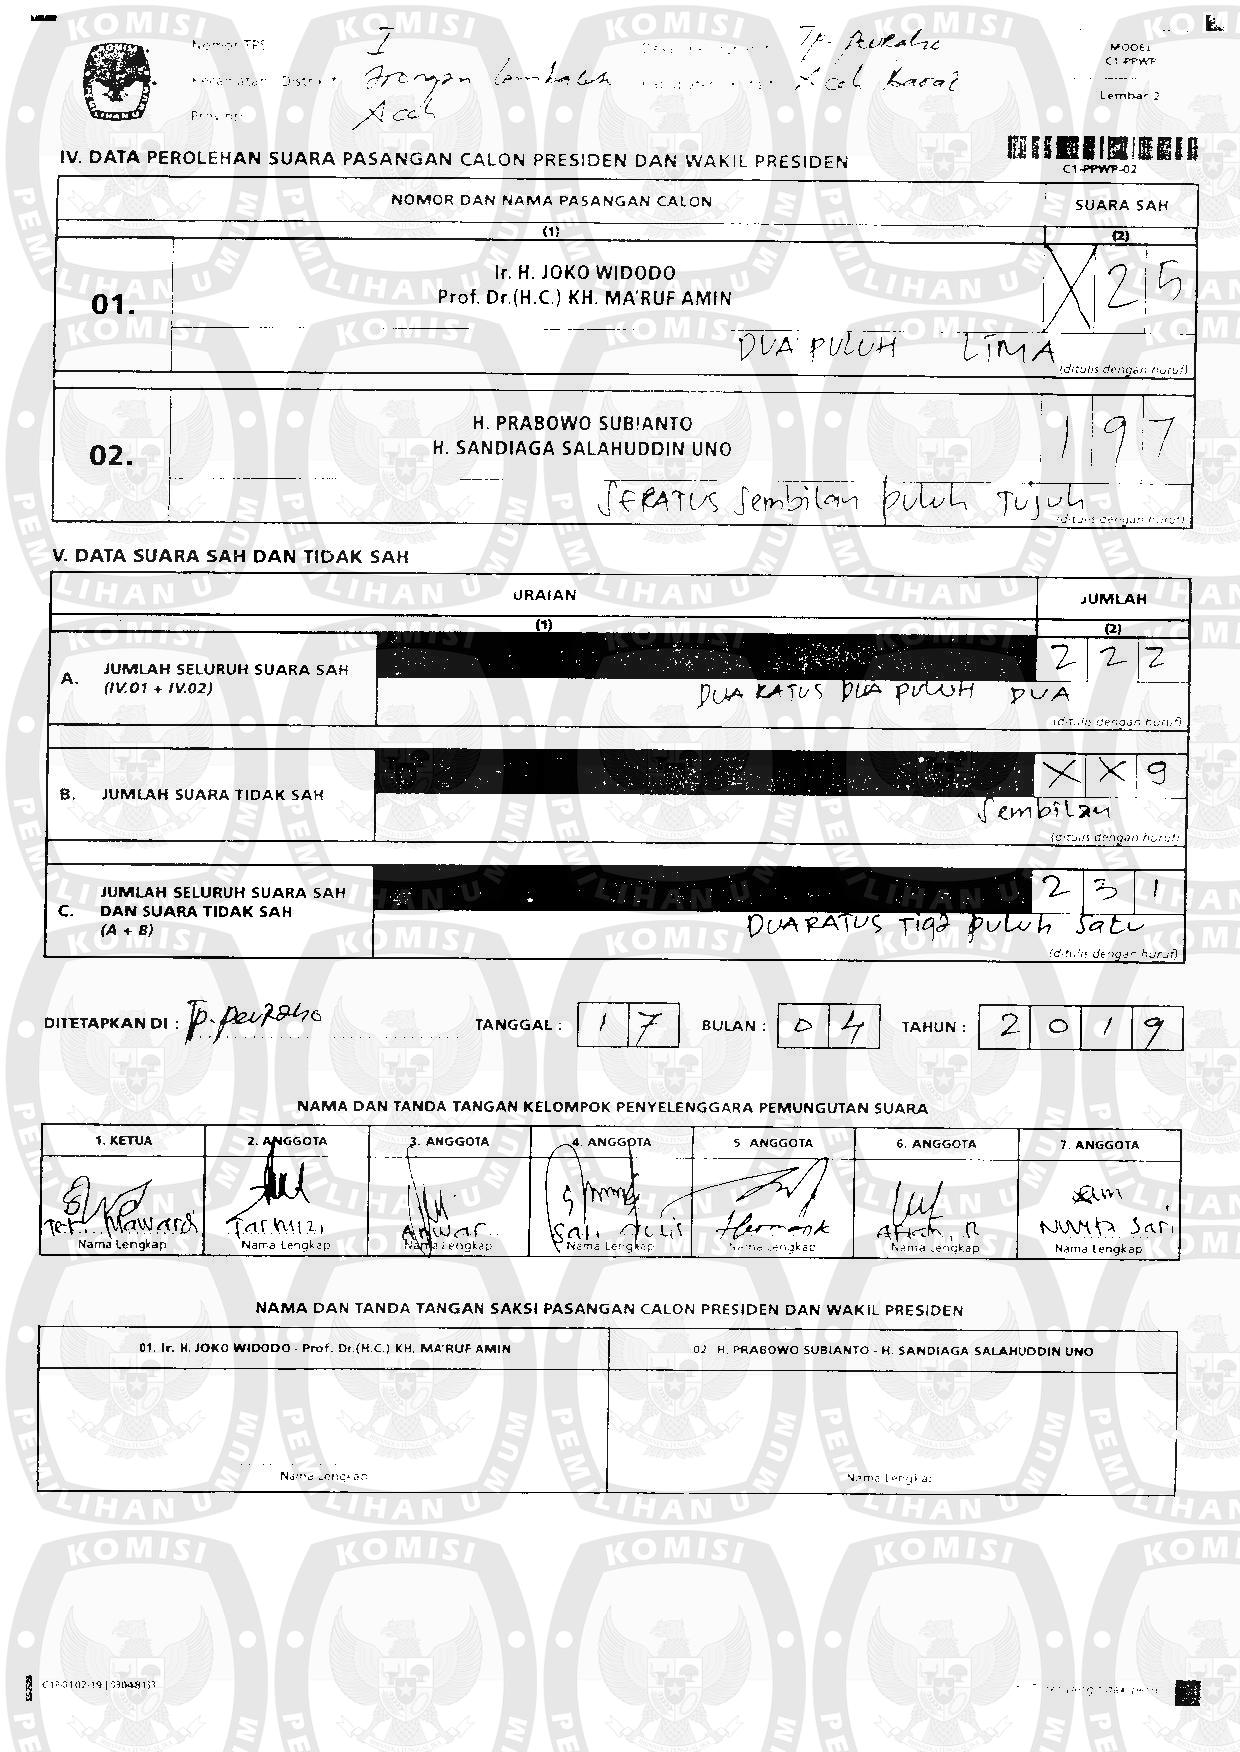 Nomor TPS I Tp. Peuraho
MODEL
C1-PPWP
Kecamatan Distrik Arongan Lambalek Aceh Barat
Lembar 2
Provinsi Aceh
IV. DATA PEROLEHAN SUARA PASANGAN CALON PRESIDEN DAN WAKIL PRESIDEN
C1-PPWP-02
NOMOR DAN NAMA PASANGAN CALON SUARA SAH
(1) (2)
01. Ir. H. JOKO WIDODO X 2 5
Prof. Dr.(H.C.) KH. MA'RUF AMIN
DUA PULUH LIMA
(ditulis dengan huruf)
02. H. PRABOWO SUBIANTO 1 9 7
H. SANDIAGA SALAHUDDIN UNO
SERATUS Sembilan puluh Tujuh
(ditulis dengan huruf)
V. DATA SUARA SAH DAN TIDAK SAH
URAIAN JUMLAH
(1) (2)
A. JUMLAH SELURUH SUARA SAH 2 2 2
(IV.01 + IV.02)
DUA RATUS DUA PULUH DUA
(ditulis dengan huruf)
B. JUMLAH SUARA TIDAK SAH X X 9
Sembilan
(ditulis dengan huruf)
C. JUMLAH SELURUH SUARA SAH DAN SUARA TIDAK SAH 2 3 1
(A + B)
DUA RATUS Tiga puluh Satu
(ditulis dengan huruf)
DITETAPKAN DI : Tp. peuraho TANGGAL : 1 7 BULAN : 0 4 TAHUN : 2 0 1 9
NAMA DAN TANDA TANGAN KELOMPOK PENYELENGGARA PEMUNGUTAN SUARA
1. KETUA 2. ANGGOTA 3. ANGGOTA 4. ANGGOTA 5 ANGGOTA 6. ANGGOTA 7. ANGGOTA
Mawardi Tarmizi Anwar Sari
Nama Lengkap Nama Lengkap Nama Lengkap Nama Lengkap Nama Lengkap Nama Lengkap Nama Lengkap
NAMA DAN TANDA TANGAN SAKSI PASANGAN CALON PRESIDEN DAN WAKIL PRESIDEN
01. Ir. H. JOKO WIDODO - Prof. Dr.(H.C.) KH. MA'RUF AMIN 02 H. PRABOWO SUBIANTO - H. SANDIAGA SALAHUDDIN UNO
Nama Lengkap Nama Lengkap